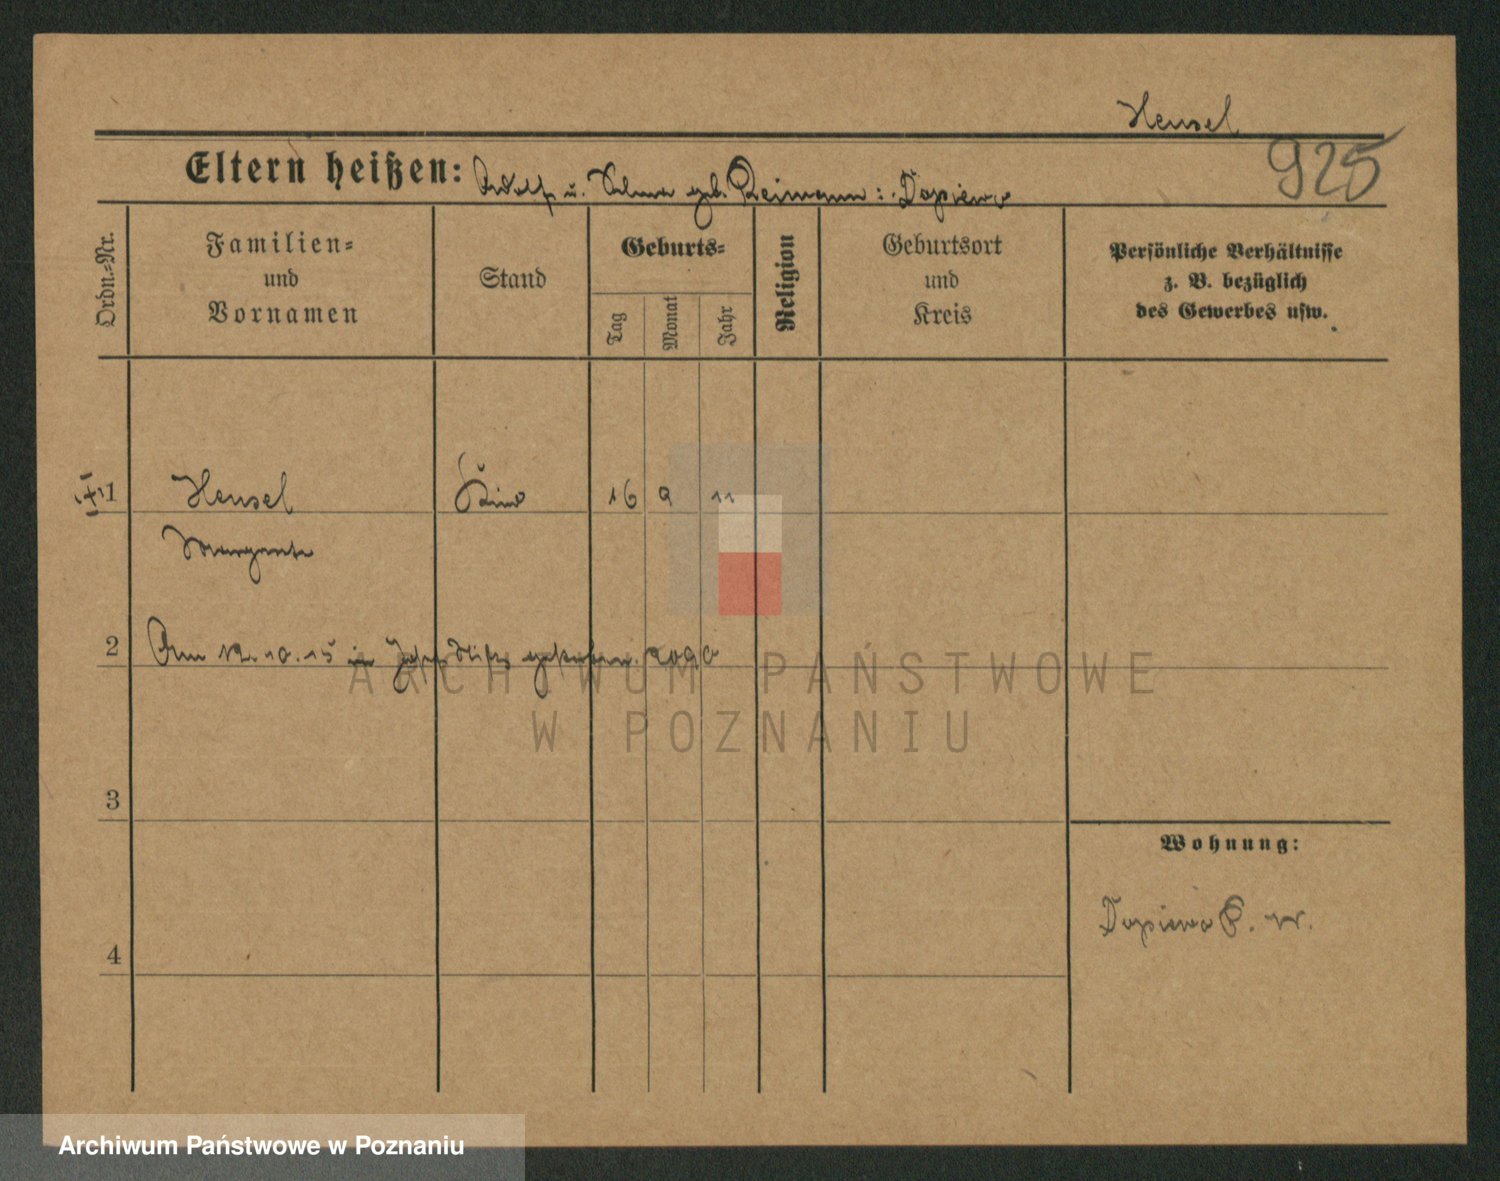 Hensel
925
Eltern heißen: Adolf u. Selma geb. Reimann : Dopiewo
Ordn.=Nr.
Familien=
und
Vornamen
Stand
Geburts=
Tag
Monat
Jahr
Religion
Geburtsort
und
Kreis
Persönliche Verhältnisse
z. B. bezüglich
des Gewerbes usw.
1 Hensel Kind 16 9 11
Margarete
2 Am 12.10.15 in gestorben.
3
4
Wohnung:
Dopiewo P. W.
ARCHIWUM PAŃSTWOWE
W POZNANIU
Archiwum Państwowe w Poznaniu